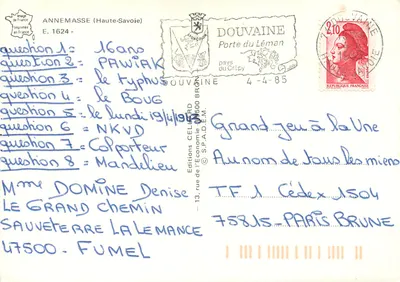 ANNEMASSE (Haute-Savoie)
E. 1624 -
question 1 = 16 ans
question 2 = PAWIAK
question 3 = le typhus
question 4 = le BOUG
question 5 = le lundi 19/4/1943
question 6 = NKVD
question 7 = Colporteur
question 8 = Mandelieu
Mme DOMINE Denise
LE GRAND CHEMIN
SAUVETERRE LA LEMANCE
47500 - FUMEL
DOUVAINE
Porte du Léman
DOUVAINE
4-4-85
2,10
Grand jeu à la Une
Au nom de tous les miens
TF 1 Cédex 1504
75815 - PARIS BRUNE